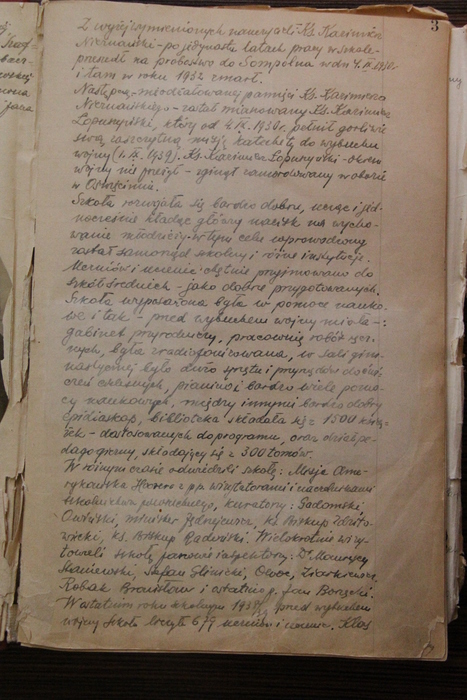 3
Z wyżej wymienionych nauczycieli Ks. Kazimierz
Nieznański - po jedynastu latach pracy w szkole -
przeszedł na probostwo do Sompolna w dn. 4. IX. 1930 r.
i tam w roku 1932 zmarł.
Następcą nieodżałowanej pamięci Ks. Kazimierza
Nieznańskiego - został mianowany Ks. Kazimierz
Łopuszyński, który od 4. IX. 1930 r. pełnił gorliwie
swą zaszczytną misję katechety do wybuchu
wojny (1. IX. 1939). Ks. Kazimierz Łopuszyński - okresu
wojny nie przeżył - zginął zamordowany w obozie
w Oświęcimiu.
Szkoła rozwijała się bardzo dobrze, ucząc i jed-
nocześnie kładąc główny nacisk na wycho-
wanie młodzieży - w tym celu wprowadzony
został samorząd szkolny i różne instytucje.
Uczniów i uczenice chętnie przyjmowano do
szkół średnich - jako dobrze przygotowanych.
Szkoła wyposażona była w pomoce nauko-
we i tak - przed wybuchem wojny miała -:
gabinet przyrodniczy, pracownię robót ręcz-
nych, była zradiofonizowana, w sali gimn-
nastycznej było dużo sprzętu i przyrządów do ćwi-
czeń cielesnych, pianino i bardzo wiele pomo-
cy naukowych, między innymi bardzo dobry
epidiaskop, biblioteka składała się z 1500 książ-
żek - dostosowanych do programu, oraz dział pe-
dagogiczny, składający się z 300 tomów.
W różnym czasie odwiedzili szkołę: Misja Ame-
rykańska z p.p. wizytatorami i naczelnikami
szkolnictwa, kuratorzy: Gadomski,
Owiński, minister Jędrzejewicz, ks. Biskup
ks. Biskup Radoński. Wielokrotnie wizy-
towali szkołę panowie inspektorzy: Dr Maurycy
Staniewski, Stefan Gliński, Ziarkiewicz,
Robak Bronisław i ostatnio p. Jan Borzęcki.
W ostatnim roku szkolnym 1938/ przed wybuchem
wojny szkoła liczyła 679 uczniów i uczenic. Klas